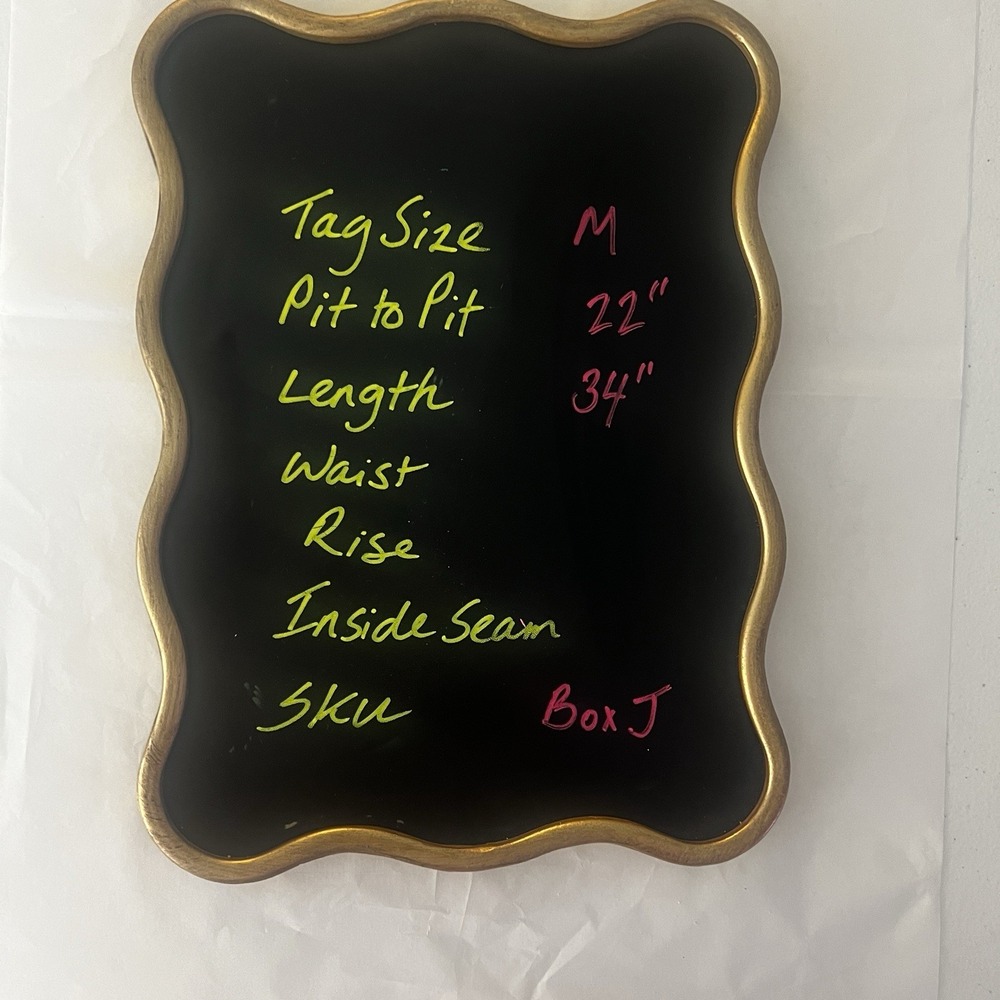 Tag Size M
Pit to Pit 22"
Length 34"
Waist
Rise
Inside Seam
SKU Box J